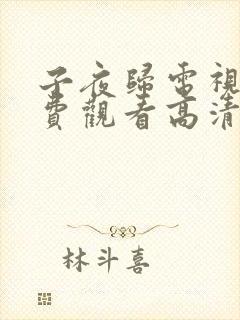 子夜歸電視
費觀看高清
林斗喜